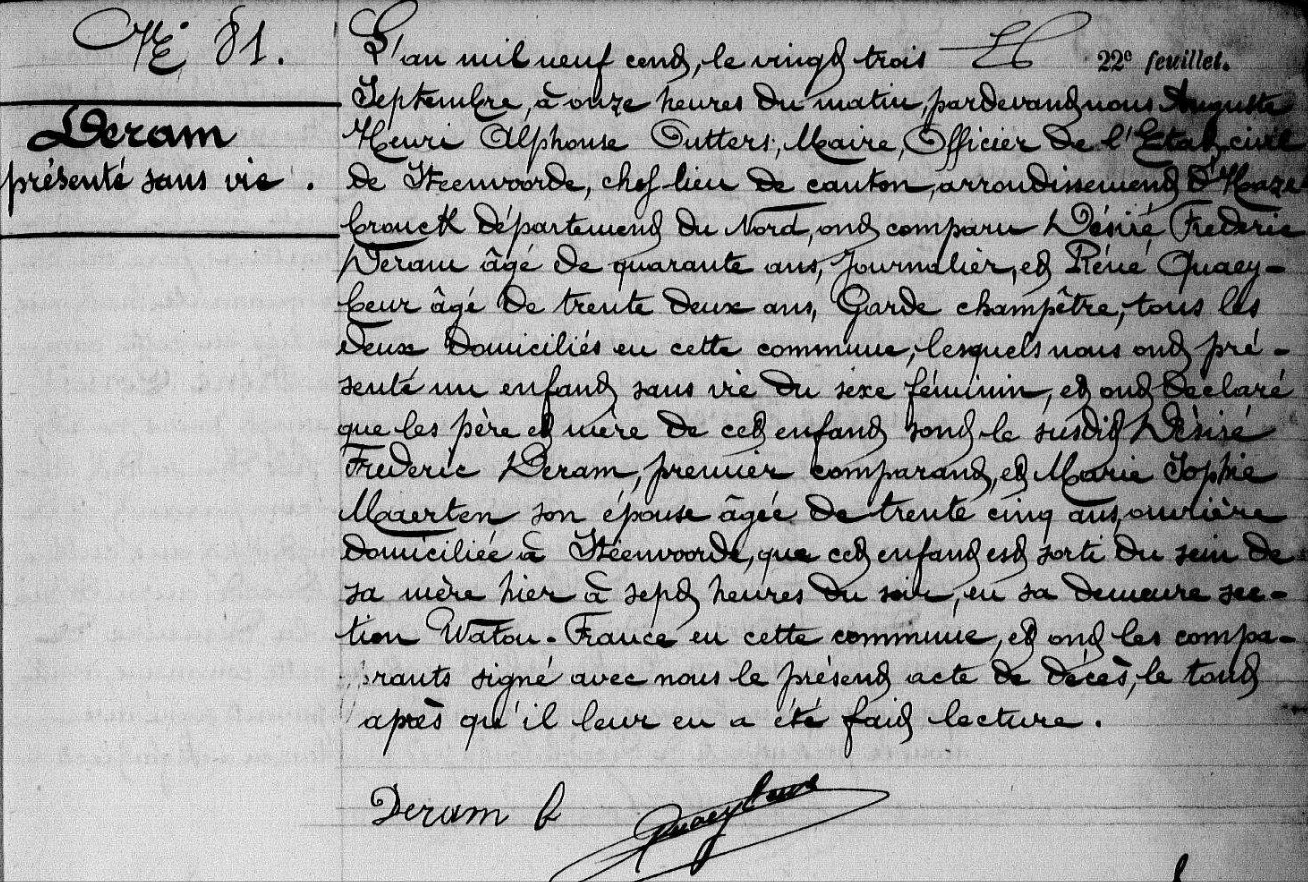 N° 81.
22e feuillet.
Deram
présenté sans vie .
L'an mil neuf cent, le vingt trois
Septembre, à onze heures du matin, pardevant nous Auguste
Henri Alphonse Outters, Maire, Officier de l'Etat civil
de Steenvoorde, chef lieu de canton, arrondissement d'Haze
brouck département du Nord, ont comparu Désiré Frederic
Deram âgé de quarante ans, Journalier, et Réné Quaey-
beur âgé de trente deux ans, Garde champêtre, tous les
deux domiciliés en cette commune, lesquels nous ont pré-
senté un enfant sans vie du sexe féminin, et ont déclaré
que les père et mère de cet enfant sont le susdit Désiré
Frederic Deram, premier comparant, et Marie Sophie
Maerten son épouse âgée de trente cinq ans, ouvrière
domiciliée à Steenvoorde, que cet enfant est sorti du sein de
sa mère hier à sept heures du soir, en sa demeure sec-
tion Watou-France en cette commune, et ont les compa-
rants signé avec nous le présent acte de décès, le tout
après qu'il leur en a été fait lecture .
Deram
Quaeybeur